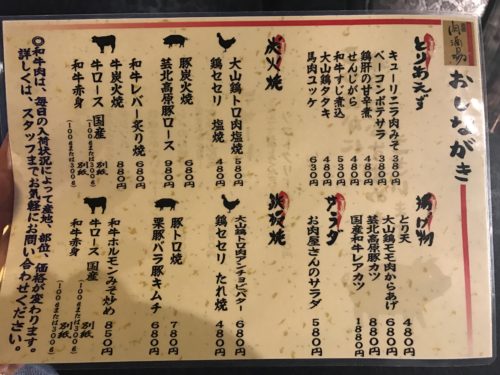 肉酒場
おしながき
とりあえず
キューリニラ肉みそ 380円
ベーコンポテサラ 380円
鶏肝の甘辛煮 480円
せんじがら 480円
和牛すじ煮込 530円
大山鶏タタキ 480円
馬肉ユッケ 630円
揚げ物
とり天 480円
大山鶏モモ肉からあげ 680円
芸北高原豚カツ 880円
国産和牛レアカツ 1880円
サラダ
お肉屋さんのサラダ 580円
炭火焼
大山鶏トロ肉塩焼 580円
鶏セセリ 塩焼 480円
豚炭火焼 680円
芸北高原豚ロース 980円
和牛レバー炙り焼 680円
牛炭火焼 880円
牛ロース 国産 別紙
(100gまたは300g)
和牛赤身 別紙
(100gまたは300g)
鉄板焼
大山鶏トロ肉アンチョビバター 680円
鶏セセリ たれ焼 480円
豚トロ焼 780円
栗豚バラ豚キムチ 680円
和牛ホルモンみそ炒め 850円
牛ロース 国産 別紙
(100gまたは300g)
和牛赤身 別紙
(100gまたは300g)
◎和牛肉は、毎日の入荷状況によって産地、部位、価格が変わります。
詳しくは、スタッフまでお気軽にお問い合わせください。